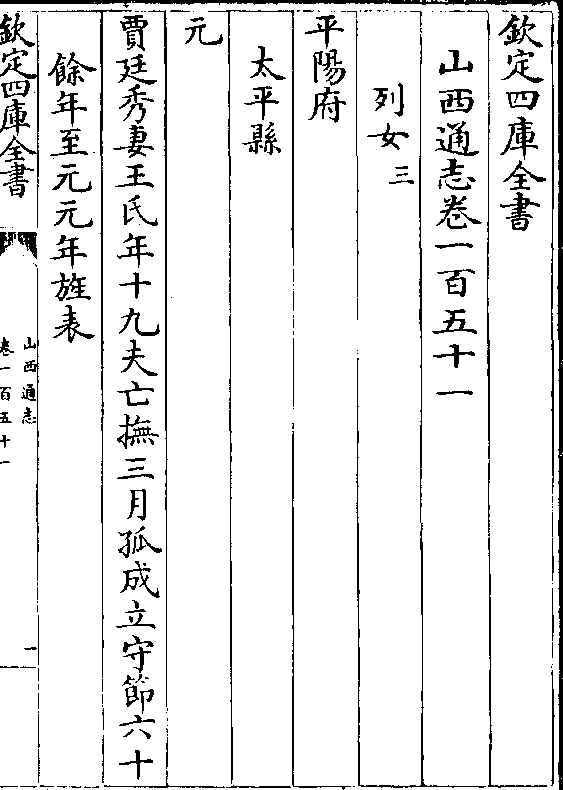 欽定四庫全書
山西通志卷一百五十一
列女三
平陽府
太平縣
元
賈廷秀妻王氏年十九夫亡撫三月孤成立守節六十
餘年至元元年旌表
欽定四庫全書
山西通志
卷一百五十一
一